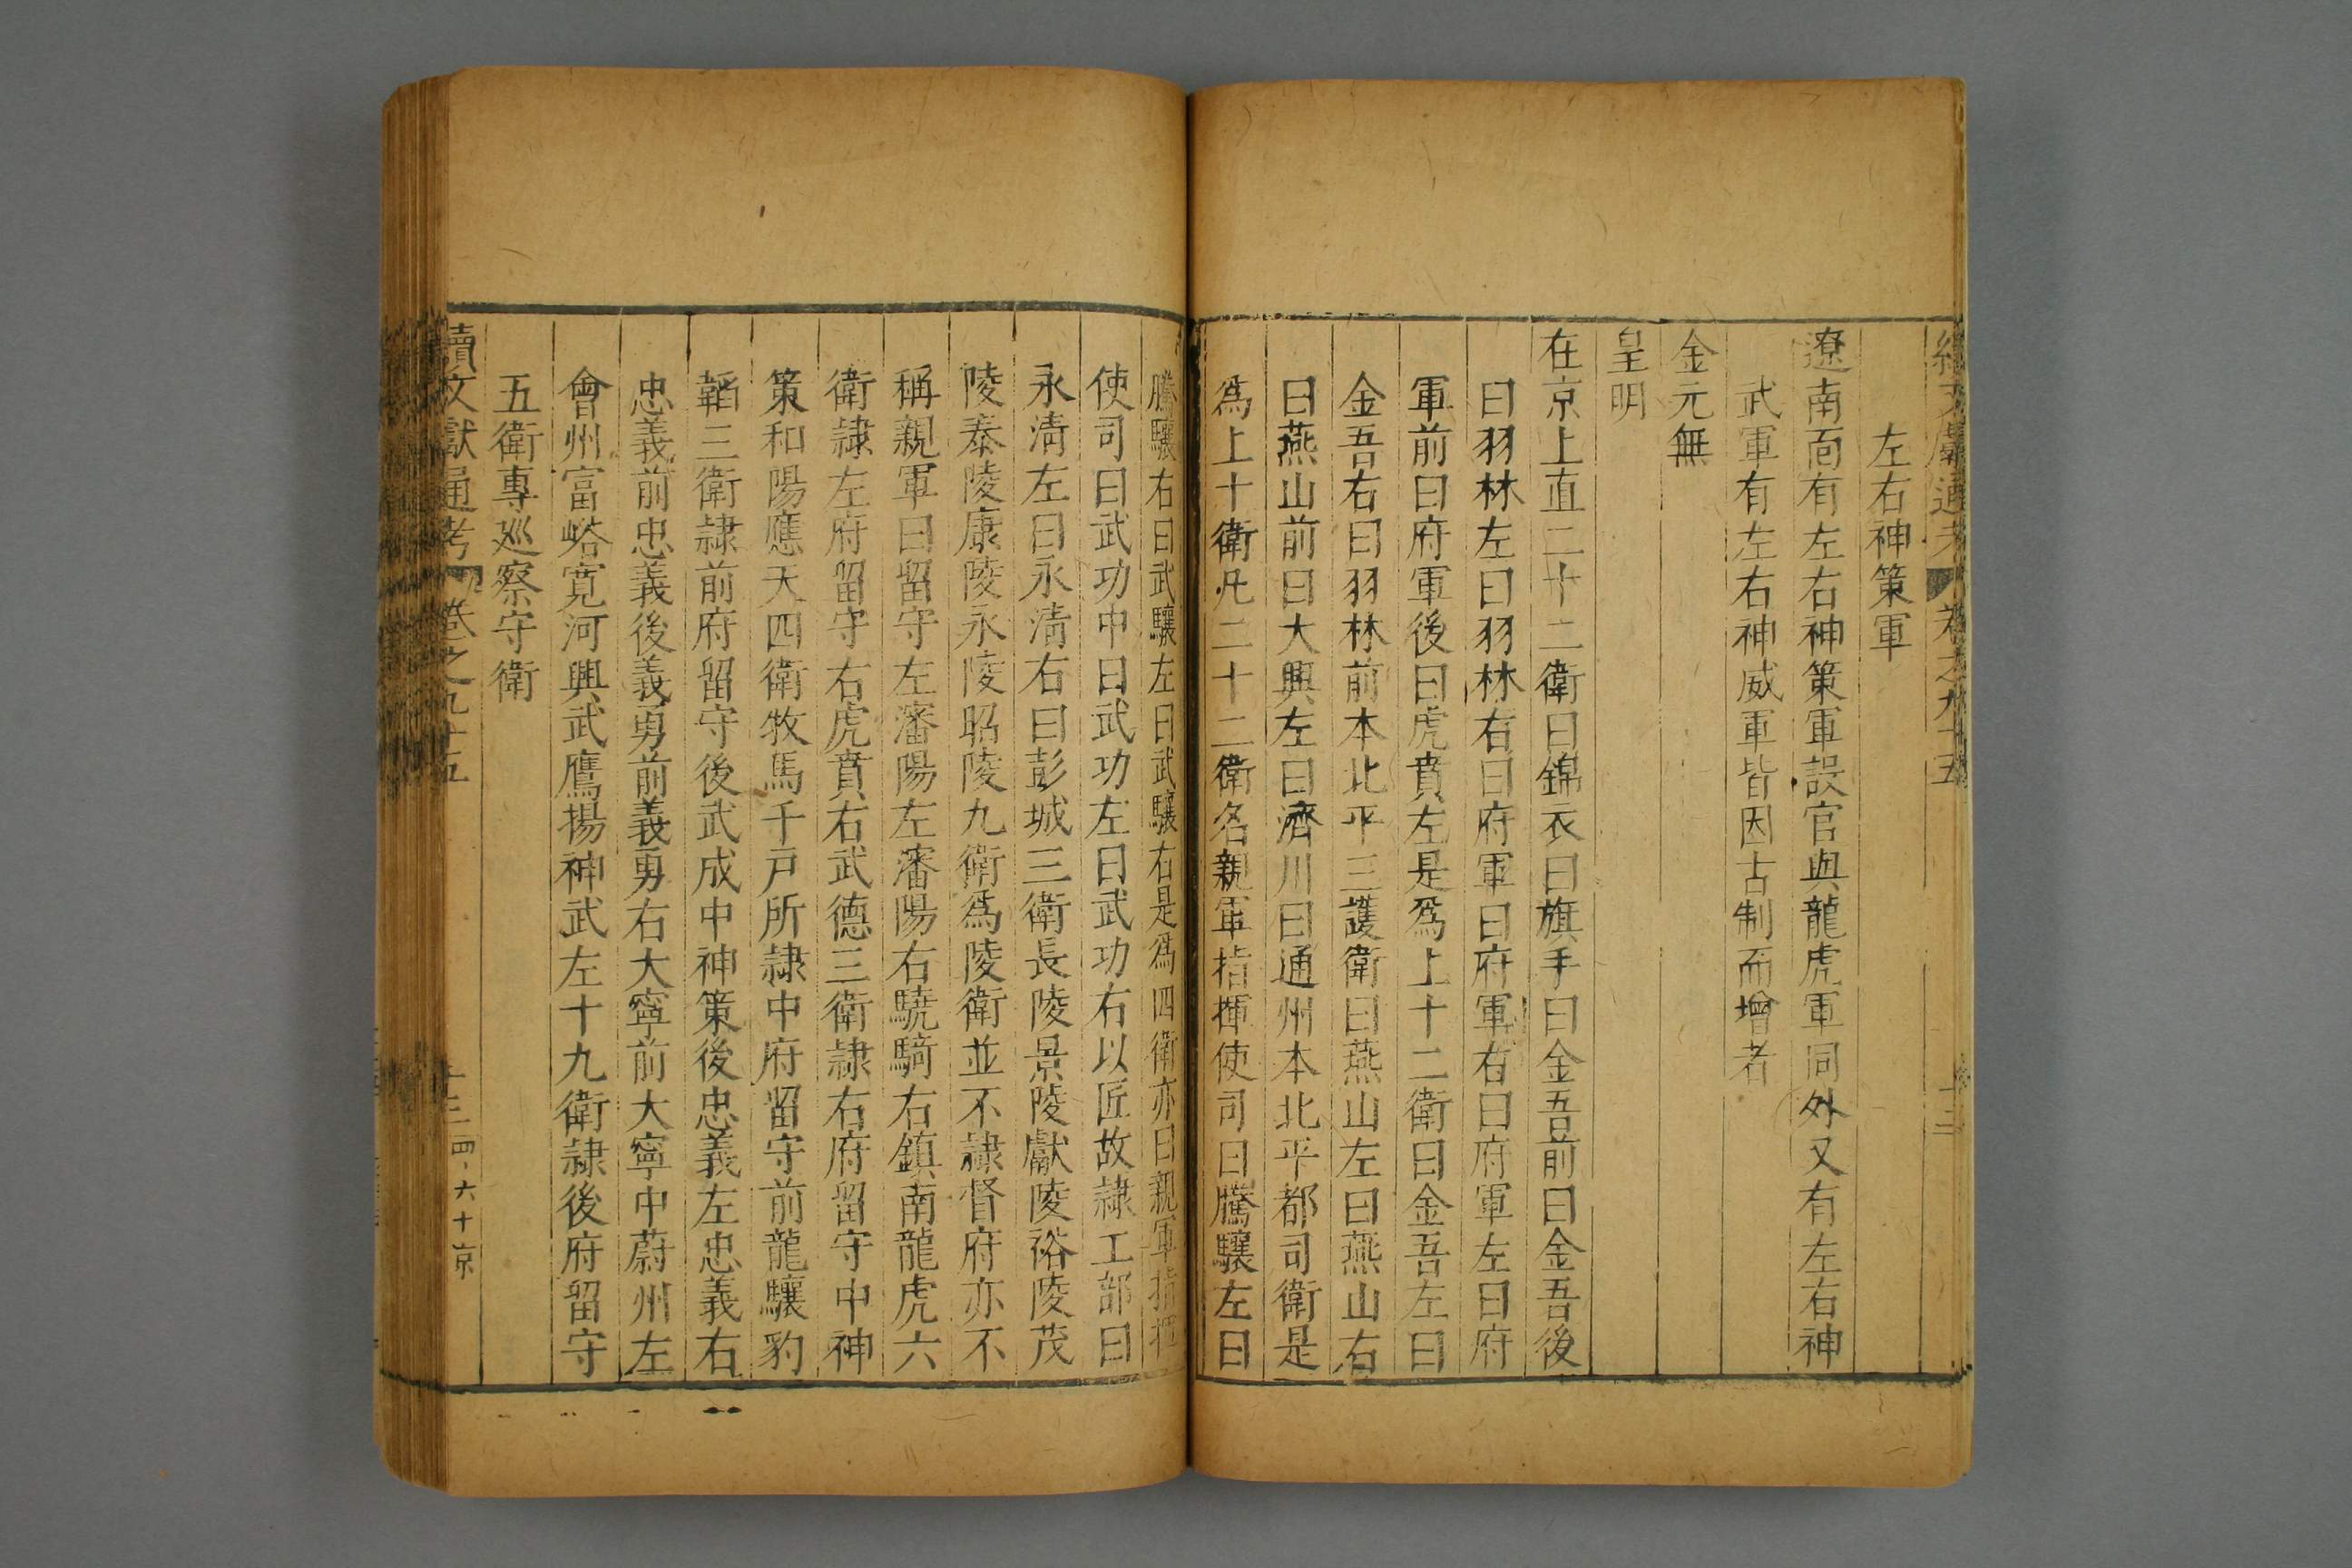 左右神策軍
遼南面有左右神策軍設官與龍虎軍同外又有左右神
武軍有左右神威軍皆因古制而增者
金元無
皇明
在京上直二十二衛曰錦衣曰旗手曰金吾前曰金吾後
曰羽林左曰羽林右曰府軍曰府軍右曰府軍左曰府
軍前曰府軍後曰虎賁左是爲上十二衛曰金吾左曰
金吾右曰羽林前本北平三護衛曰燕山左曰燕山右
曰燕山前曰大興左曰濟川曰通州本北平都司衛是
爲上十衛凡二十二衛名親軍指揮使司曰騰驤左曰
騰驤右曰武驤左曰武驤右是爲四衛亦曰親軍指揮
使司曰武功中曰武功左曰武功右以匠故隷工部曰
永淸左曰永淸右曰彭城三衛長陵景陵獻陵裕陵茂
陵泰陵康陵永陵昭陵九衛爲陵衛並不隷督府亦不
稱親軍曰留守左瀋陽左瀋陽右驍騎右鎮南龍虎六
衛隷左府留守右虎賁右武德三衛隷右府留守中神
策和陽應天四衛牧馬千戸所隷中府留守前龍驤豹
韜三衛隷前府留守後武成中神策後忠義左忠義右
忠義前忠義後義勇前義勇右大寧前大寧中蔚州左
會州富峪寛河興武鷹揚神武左十九衛隷後府留守
五衛專廵察守衛
續文獻通考 卷之九十五 十三 四六十京